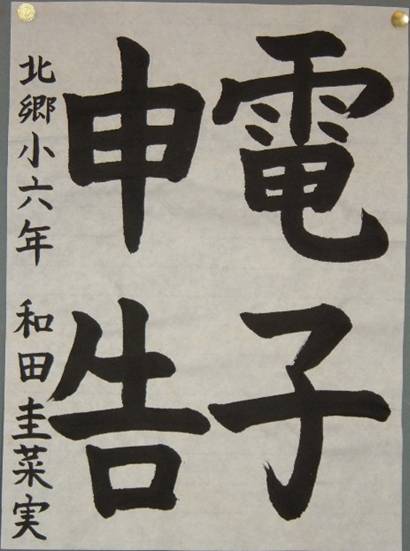 電子
申告
北郷小六年 和田圭菜実